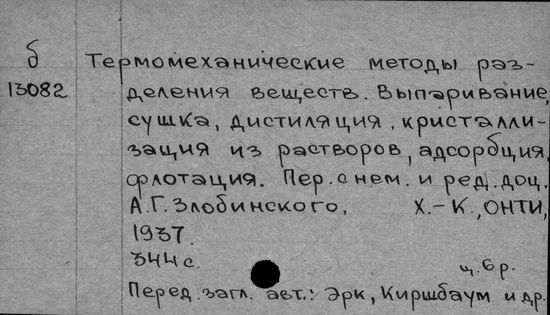 б Термомеханические методы раз-
13082
деления веществ. Выпаривание,
сушка, дистиляция, кристалли-
зация из растворов, адсорбция,
флотация. Пер. с нем. и ред. доц.
А.Г. Злобинского, Х.-К., ОНТИ,
1937.
344 с.
ц. 6 р.
Перед. загл. авт.: Эрк, Киршбаум и др.